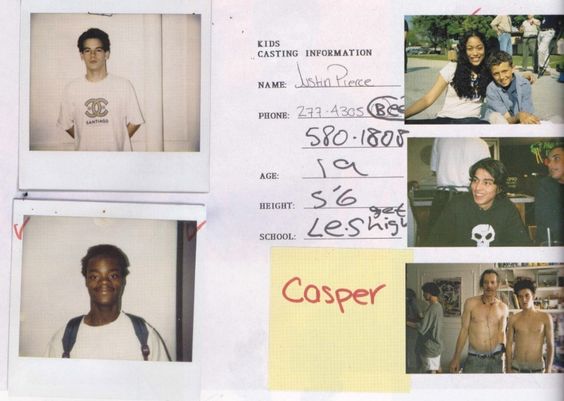 SANTIAGO
KIDS
CASTING INFORMATION
NAME: Justin Pierce
PHONE: 277-4305 Bee
580-1808
AGE: 19
HEIGHT: 5'6
SCHOOL: L.e.S get high
Casper